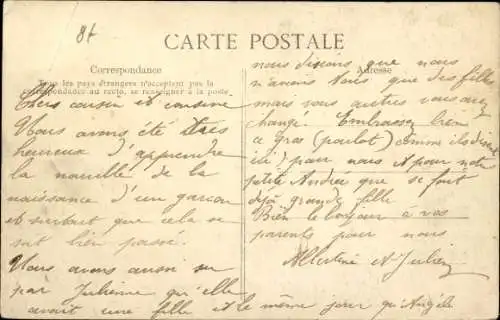 8f
CARTE POSTALE
Correspondance
Tous les pays étrangers n'acceptent pas la
correspondance au recto, se renseigner à la poste.
Chers cousin et cousine
Nous avons été très
heureux d'apprendre
la nouvelle de la
naissance d'un garcon
et surtout que cela se
soit bien passé.
Nous avons aussi su
par Julienne qu'elle
avait une fille et le même jour qu'Angèle
Adresse
nous disions que nous
n'avions nous que des filles
mais vous autres vous avez
changé. Embrassez bien
ce gros (poulot) comme ils
pour nous et pour notre
petite Andrée que se fait
déjà grande fille
Bien le bonjour à vos
parents pour nous
Albertine et Julien